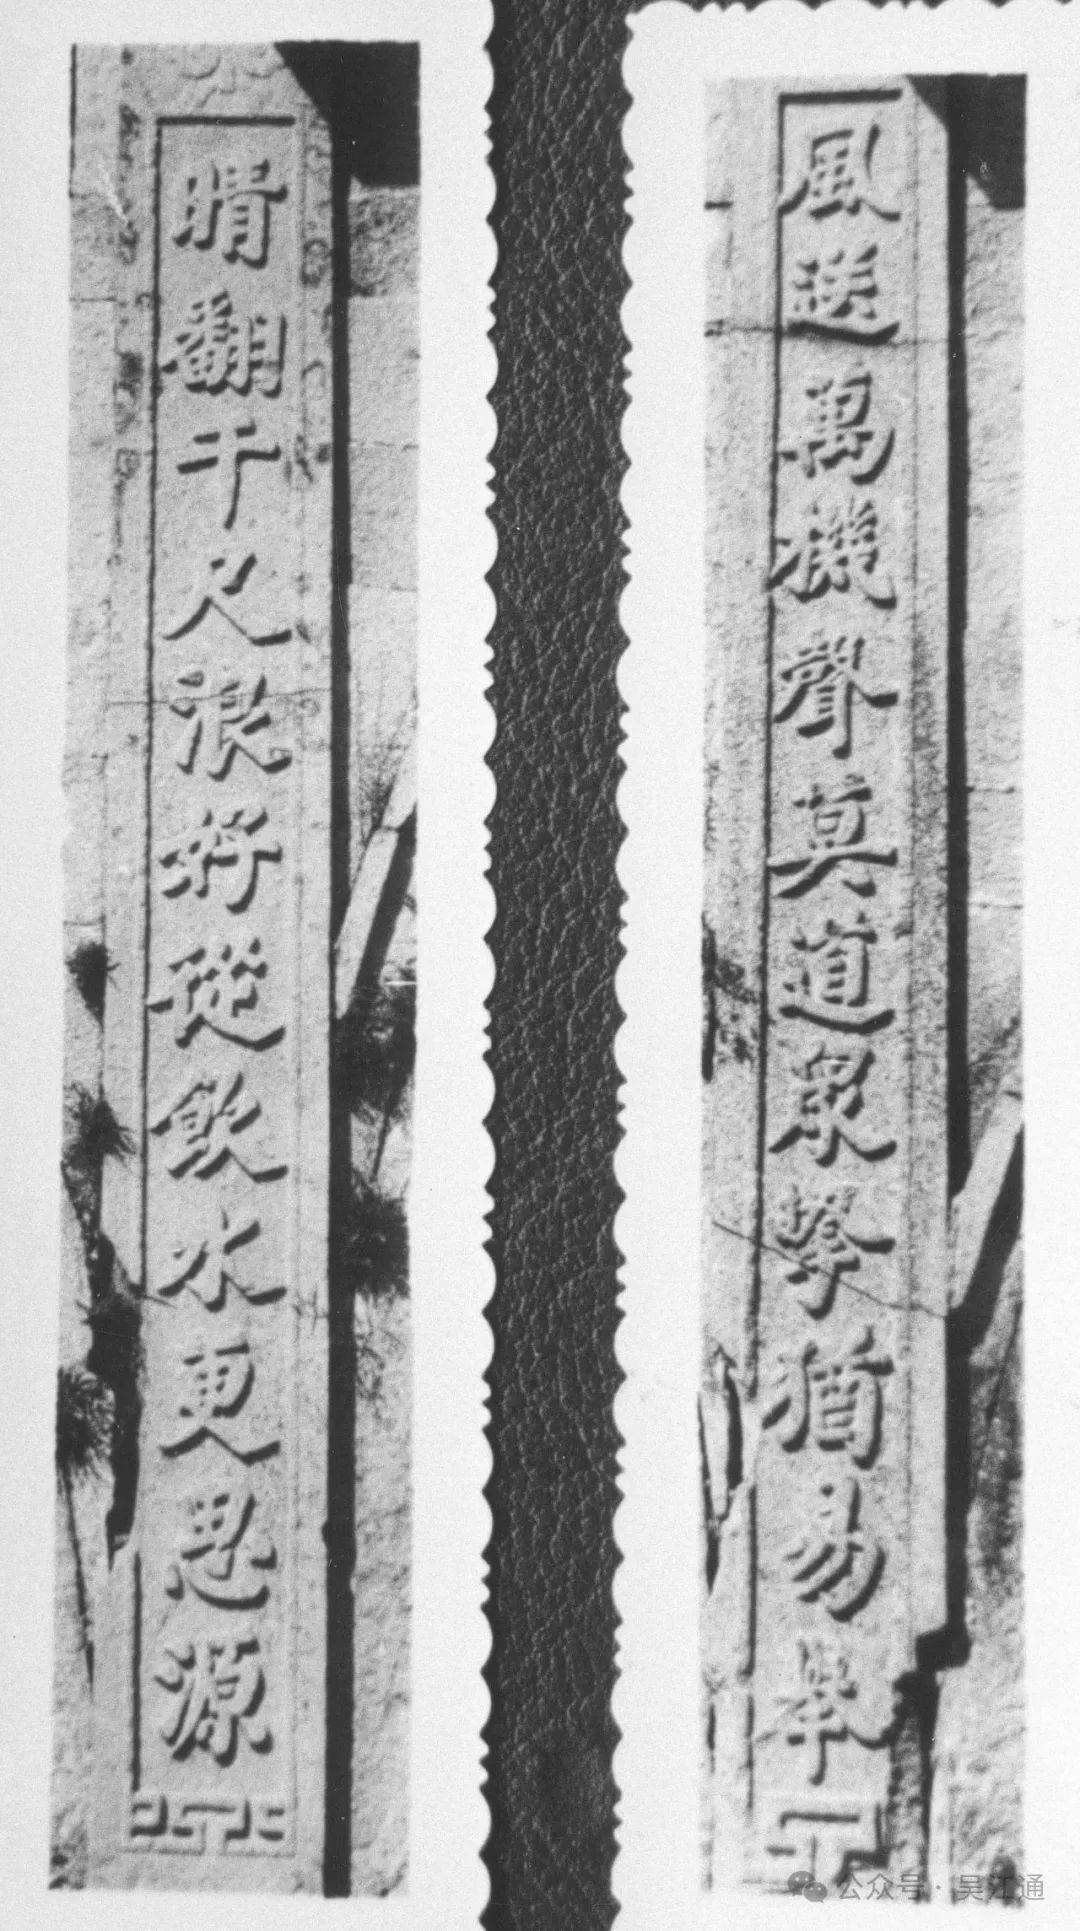 風送萬機聲莫道衆擎猶易舉
晴翻千尺浪好從飲水更思源
公众号·吴江通